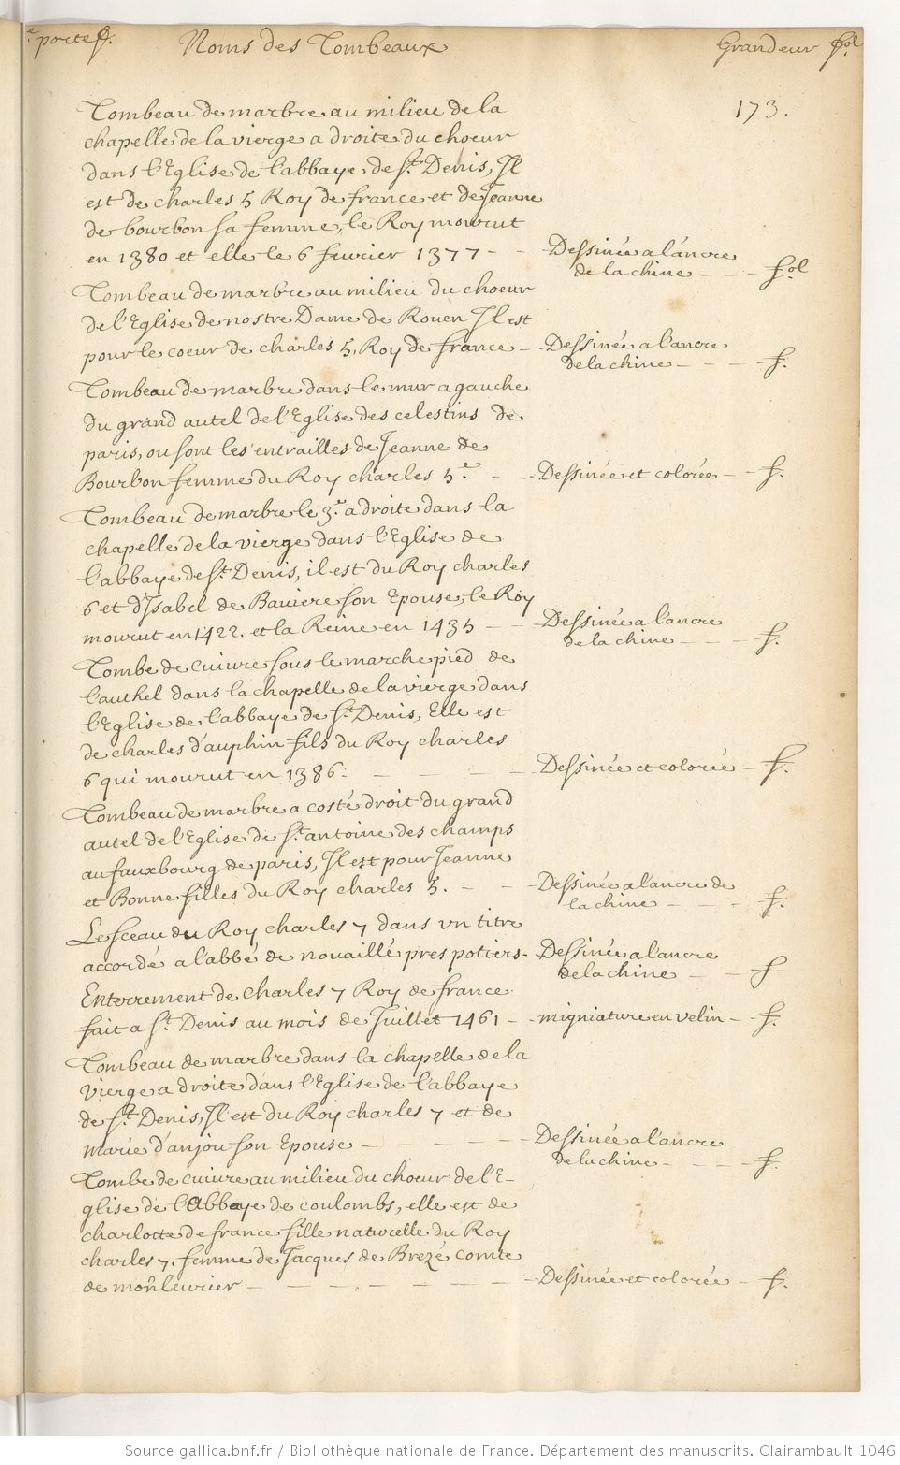 e portef. Noms des Tombeaux Grandeur fol
173.
Tombeau de marbre au milieu de la
chapelle de la vierge a droite du choeur
dans l'Eglise de l'abbaye de St. Denis, Il
est de charles 5 Roy de france et de Jeanne
de bourbon sa femme, le Roy mourut
en 1380 et elle le 6 fevrier 1377 - - Dessinée a l'ancre
de la chine - - - fol
Tombeau de marbre au milieu du choeur
de l'Eglise de nostre Dame de Rouen Il est
pour le coeur de charles 5, Roy de france - Dessinée a l'ancre
de la chine - - - - f.
Tombeau de marbre dans le mur a gauche
du grand autel de l'Eglise des celestins de
paris, ou sont les entrailles de Jeanne de
Bourbon femme du Roy charles 5e - - Dessinée et colorée - f.
Tombeau de marbre le 3e a droite dans la
chapelle de la vierge dans l'Eglise de
l'abbaye de St. Denis, il est du Roy charles
6 et d'Isabel de Baviere son Epouse, le Roy
mourut en 1422. et la Reine en 1435 - - Dessinée a l'ancre
de la chine - - - f.
Tombe de cuivre sous le marchepied de
l'authel dans la chapelle de la vierge dans
l'Eglise de l'abbaye de St. Denis, Elle est
de charles d'auphin fils du Roy charles
6 qui mourut en 1386. - - - - Dessinée et colorée - f.
Tombeau de marbre a costé droit du grand
autel de l'Eglise de St. antoine des champs
au fauxbourg de paris, Il est pour Jeanne
et Bonne filles du Roy charles 5. - - Dessinée a l'ancre de
la chine - - - f.
Le sceau du Roy charles 7 dans un titre
accordé a l'abbé de nouaillé pres potiers - Dessinée a l'ancre
de la chine - - f
Enterrement de charles 7 Roy de france
fait a St. Denis au mois de Juillet 1461 - migniature en velin - f.
Tombeau de marbre dans la chapelle de la
vierge a droite dans l'Eglise de l'abbaye
de St. Denis, Il est du Roy charles 7 et de
marie d'anjou son Epouse - - - - Dessinée a l'ancre
de la chine - - - - f.
Tombe de cuivre au milieu du choeur de l'E-
glise de l'Abbaye de coulombs, elle est de
charlotte de france fille naturelle du Roy
charles 7, femme de Jacques de Brezé comte
de monleurier - - - - - - - Dessinée et colorée - f.
Source gallica.bnf.fr / Bibliothèque nationale de France. Département des manuscrits. Clairambault 1046